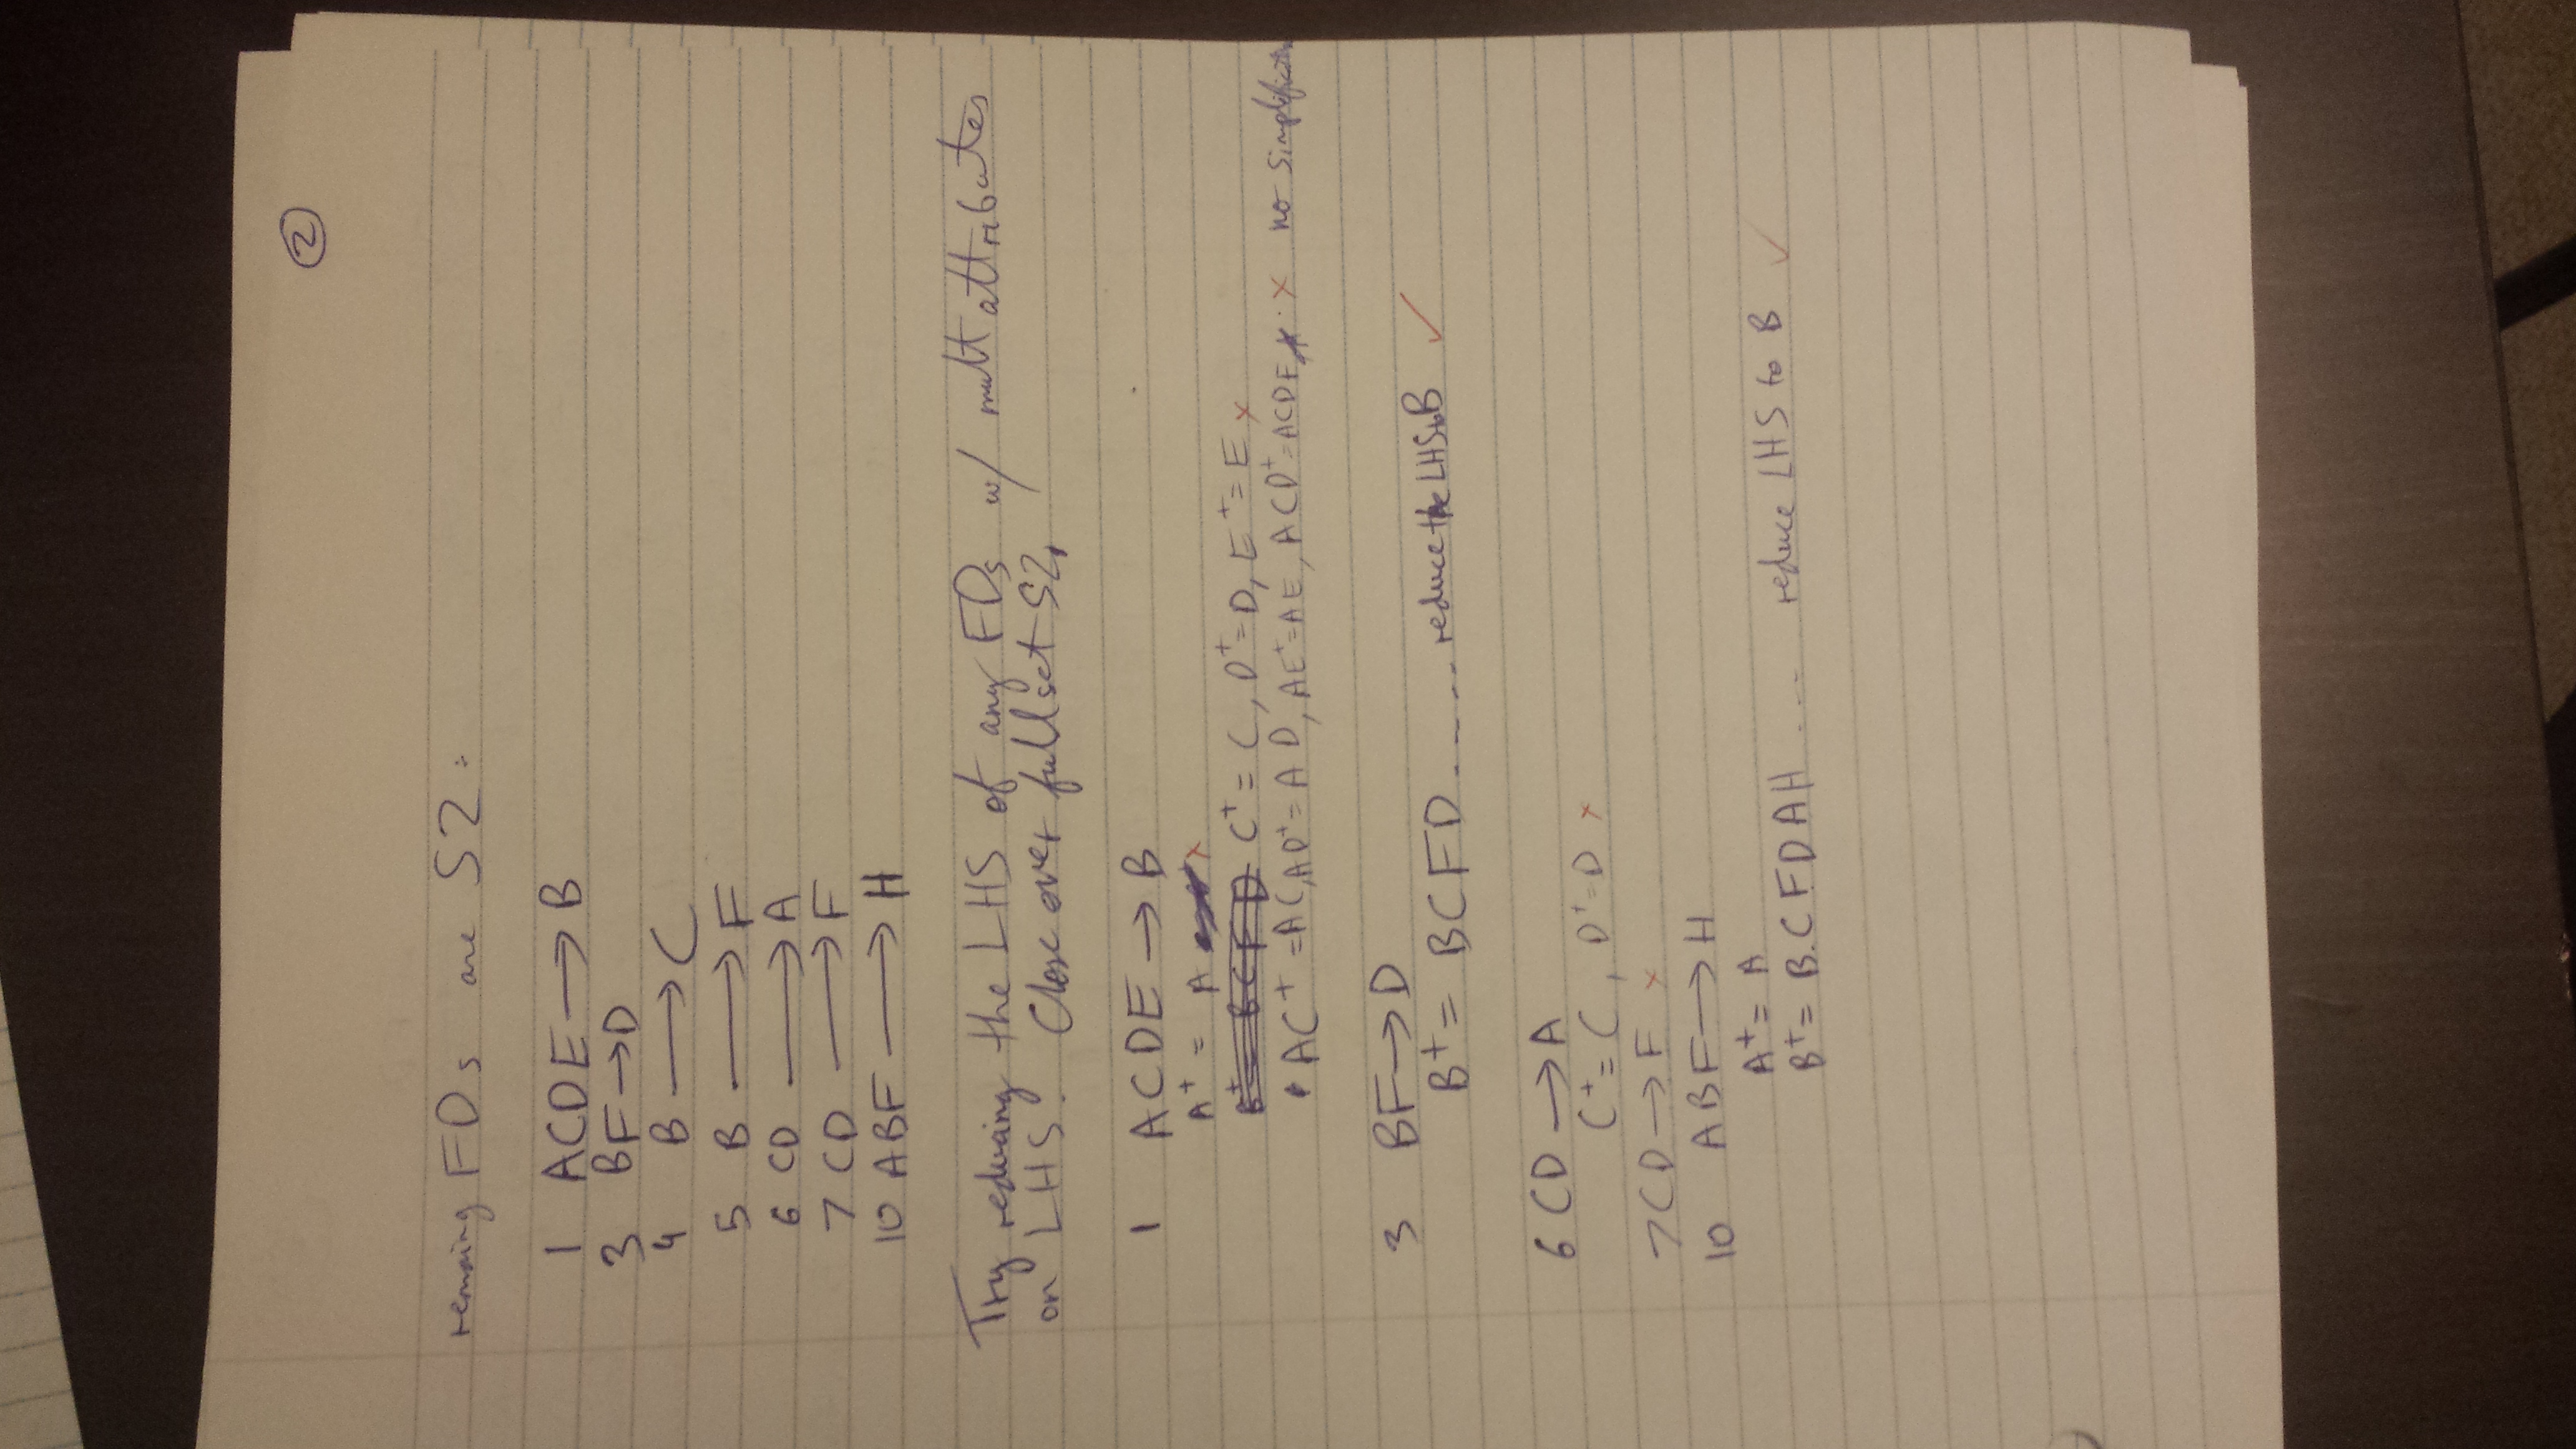 2
remaing FDs are S2:
1 ACDE → B
3 BF → D
4 B → C
5 B → F
6 CD → A
7 CD → F
10 ABF → H
Try reducing the LHS of any FDs w/ mult attributes
on LHS. Close over full set S2.
1 ACDE → B
A⁺ = A x
B⁺ = BCFD C⁺ = C, D⁺=D, E⁺=E x
AC⁺ = AC, AD⁺ = AD, AE⁺=AE, ACD⁺=ACDF x no simplification
3 BF → D
B⁺ = BCFD ..... reduce the LHS to B ✓
6 CD → A
C⁺ = C, D⁺=D x
7 CD → F x
10 ABF → H
A⁺ = A
B⁺ = B.CFDAH ... reduce LHS to B ✓